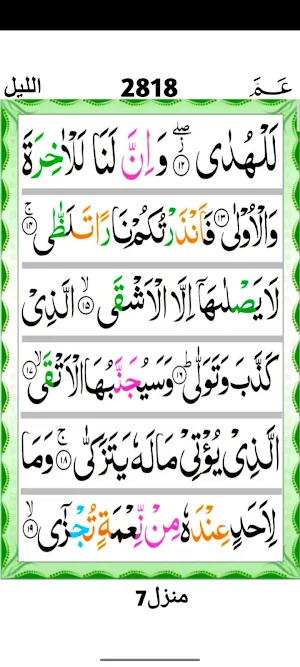 الليل 2818 عَمَّ
لَلْهُدٰى ۖ ۱۲ وَاِنَّ لَنَا لَلْاٰخِرَةَ
وَالْاُوْلٰى ۱۳ فَاَنْذَرْتُكُمْ نَارًا تَلَظّٰى ۚ ۱۴
لَا يَصْلٰىهَاۤ اِلَّا الْاَشْقَى ۙ ۱۵ الَّذِىْ
كَذَّبَ وَتَوَلّٰى ؕ ۱۶ وَسَيُجَنَّبُهَا الْاَتْقَى ۙ ۱۷
الَّذِىْ يُؤْتِىْ مَالَهٗ يَتَزَكّٰى ۚ ۱۸ وَمَا
لِاَحَدٍ عِنْدَهٗ مِنْ نِّعْمَةٍ تُجْزٰٓى ۙ ۱۹
منزل7